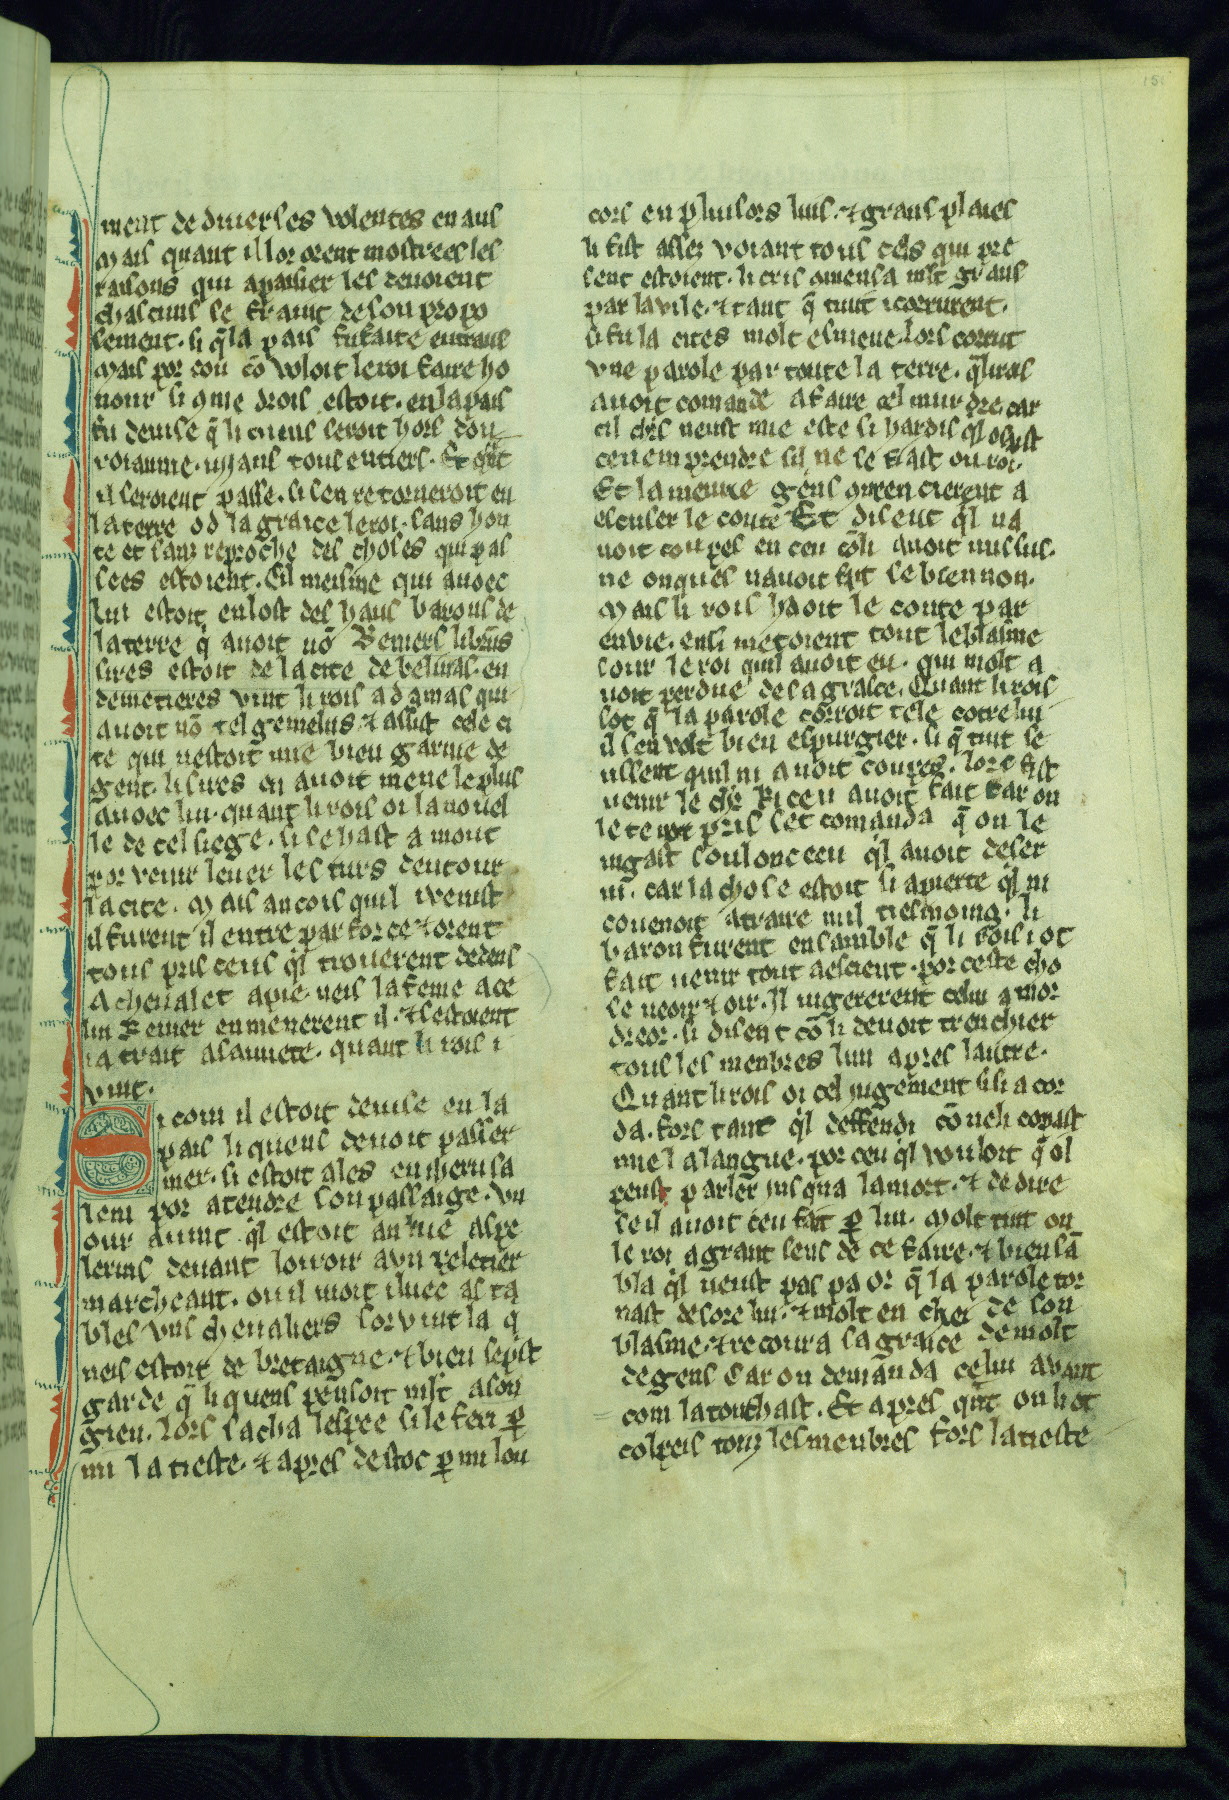 151
ment de diuerses volentes en aus
Mais quant il lor orent mostrees les
raisons qui apaisier les deuoient
chascuns se fraint de son propo
sement. si q̃ la pais fu faite entraus
Mais por cou cõ voloit le roi faire ho
nour si 9me drois estoit. en la pais
fu deuise q̃ li cuens seroit hors dou
roiaume. iij ans tous entiers. Et qñt
il seroient passe. si sen retorneroit en
la terre od la grasce le roi. sans hon
te et sans reproche des choses qui pas
sees estoient. Cil meisme qui auoec
lui estoit en lost des haus barons de
la terre q̃ auoit nõ Reniers li brũs
sires estoit de la cite de belinas. en
demetieres vint li rois a damas qui
auoit nõ telgemelus. ⁊ assist cele ci
te qui nestoit mie bien garnie de
gent. li sires en auoit mene le plus
auoec lui. quant li rois oi la nouel
le de cel siege. si se hast a mout
por venir leuer les turs dentour
la cite. Mais ancois quil i venist
il furent il entre par force ⁊ orent
tous pris ceus ql̃ trouerent dedens
a cheual et a pie. neis la feme a ce
lui Renier enmenerent il. ⁊ sestoient
ia trait a sauuete. quant li rois i
vint.
Si com il estoit deuise en la
pais li quens deuoit passer
mer. si estoit ales en iherusa
lem por atendre son passaige. vn
iour auint ql̃ estoit en la rue as pe
letiers deuant louroir a vn peletier
marcheant. ou il iuoit iluec as ta
bles vns cheualiers sor vint la q̃
neis estoit de bretaigne. ⁊ bien se prist
garde q̃ li quens pensoit mlt̃ a son
gieu. Lors sacha lespee si le feri p̱
mi la tieste. ⁊ apres destoc p̱ mi lou
cors en pluisors lius. ⁊ grans plaies
li fist asses voiant tous cels qui pre
sent estoient. li cris omensa mlt̃ grans
par la vile. ⁊ tant q̃ tuit i coerurent.
si fu la cites molt esmeue. lors corut
vne parole par toute la terre. q̃ li rois
auoit comande a faire cel murdre. car
cil ch'rs neust mie este si hardis ql̃ osast
ceu emprendre sil ne se fiast ou roi.
Et la menue gens 9mencierent a
esculer le conte Et disent ql̃ na
uoit coupes en ceu cõ li auoit mis sus.
ne onques nauoit fait se bien non.
Mais li rois haoit le conte par
envie. ensi metoient tout le blasme
sour le roi quil auoit en. qui molt a
uoit perdue de sa grasce. Quant li rois
sot q̃ la parole corroit tele cõtre lui
il sen volt bien espurgier. si q̃ tuit se
ussent quil ni auoit coupes. lors fist
venir le ch'r ki ceu auoit fait kar on
le tenoit pris. set comanda q̃ on le
iugast soulonc ceu ql̃ auoit deser
ui. car la chose estoit si apierte ql̃ ni
couenoit atraire nul tiesmoing. li
baron furent ensamble q̃ li rois i ot
fait venir tout a escient. por ceste cho
se veoir ⁊ oir. Il iugererent celui a mor
dreor. si disent cõ li deuoit trenchier
tous les menbres lun apres lautre.
Quant li rois oi cel iugement si si acor
da. fors tant ql̃ deffendi cõ ne li copast
mie la langue. por ceu ql̃ wuloit q̃ il
peust parler iusqua la mort. ⁊ de dire
se il auoit ceu fait p̱ lui. Molt tint on
le roi a grant sens de ce faire. ⁊ bien sã
bla ql̃ neust pas paor q̃ la parole tor
nast desore lui. ⁊ molt en chei de son
blasme. ⁊ recoura sa grasce de molt
de gens Car on demanda celui auant
com la touchast. Et apres qñt on li ot
colpeis tous les menbres fors la tieste